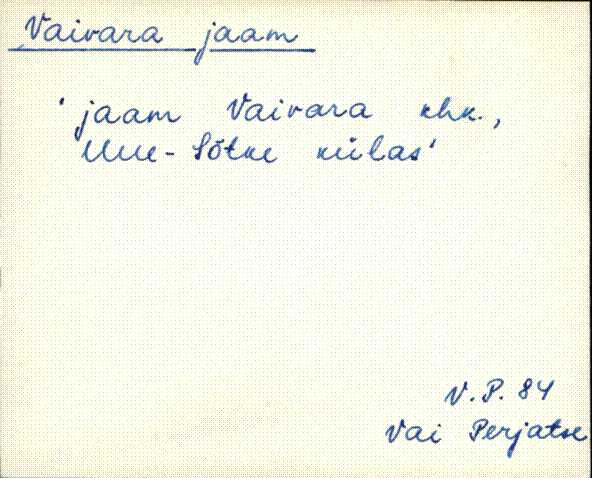 Vaivara jaam
'jaam Vaivara khk.,
Uue-Sõtke külas'
V.P. 84
Vai Perjatse